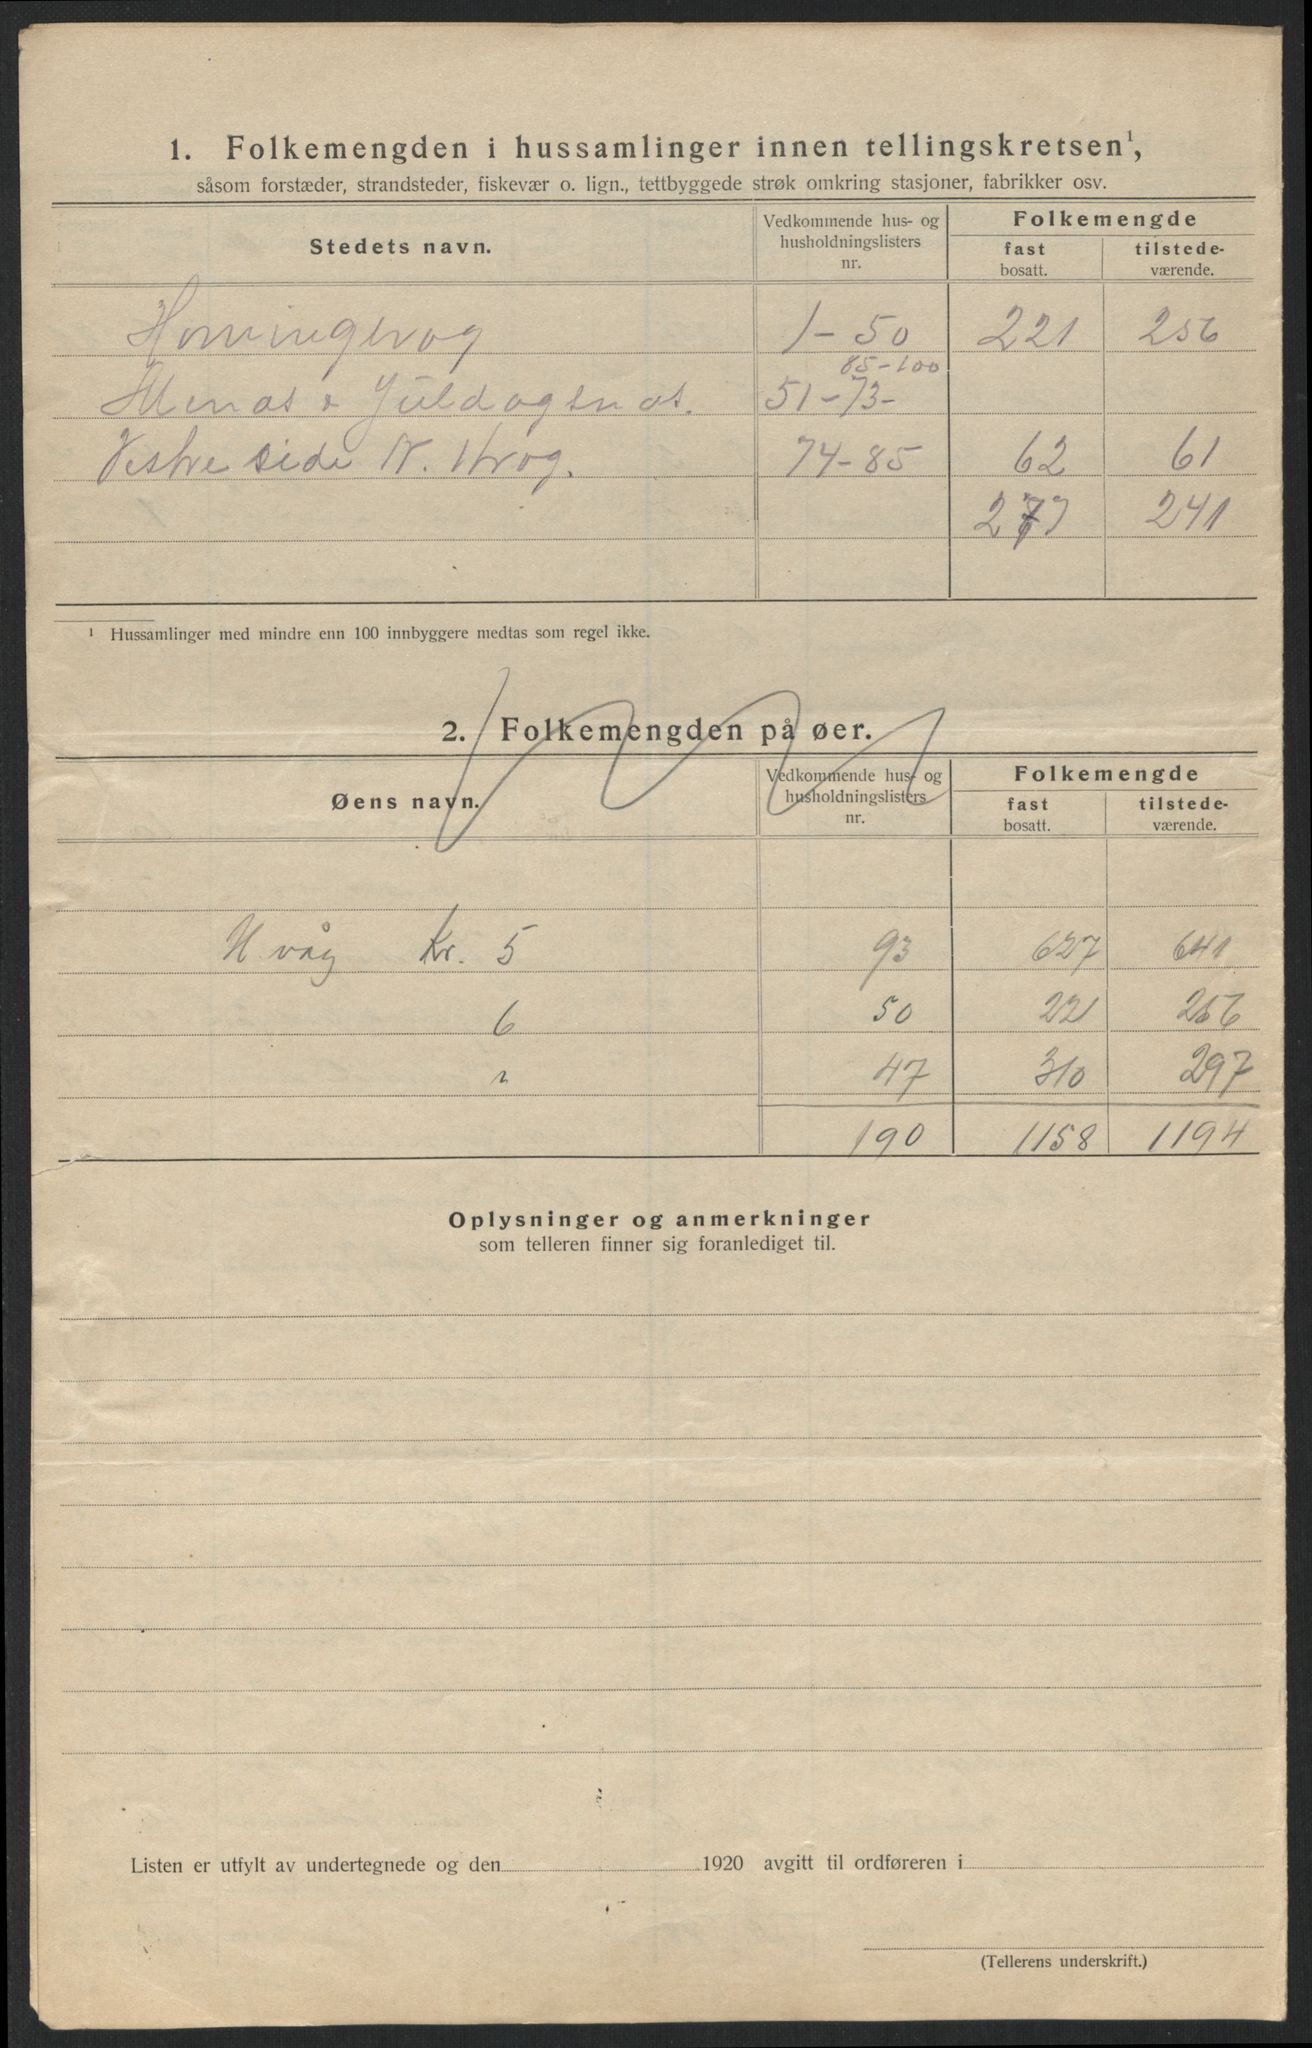 1. Folkemengden i hussamlinger innen tellingskretsen¹,
såsom forstæder, strandsteder, fiskevær o. lign., tettbyggede strøk omkring stasjoner, fabrikker osv.
Stedets navn. Vedkommende hus- og husholdningslisters nr. Folkemengde fast bosatt. tilstedeværende.
Honningsvog 1-50 221 256
85-100
51-73-
Vestre side N. 74-85 62 61
241
¹ Hussamlinger med mindre enn 100 innbyggere medtas som regel ikke.
2. Folkemengden på øer.
Øens navn. Vedkommende hus- og husholdningslisters nr. Folkemengde fast bosatt. tilstedeværende.
H.våg Kr. 5 93 627 641
6 50 221 256
" 47 310 297
190 1158 1194
Oplysninger og anmerkninger
som telleren finner sig foranlediget til.
Listen er utfylt av undertegnede og den 1920 avgitt til ordføreren i
(Tellerens underskrift.)